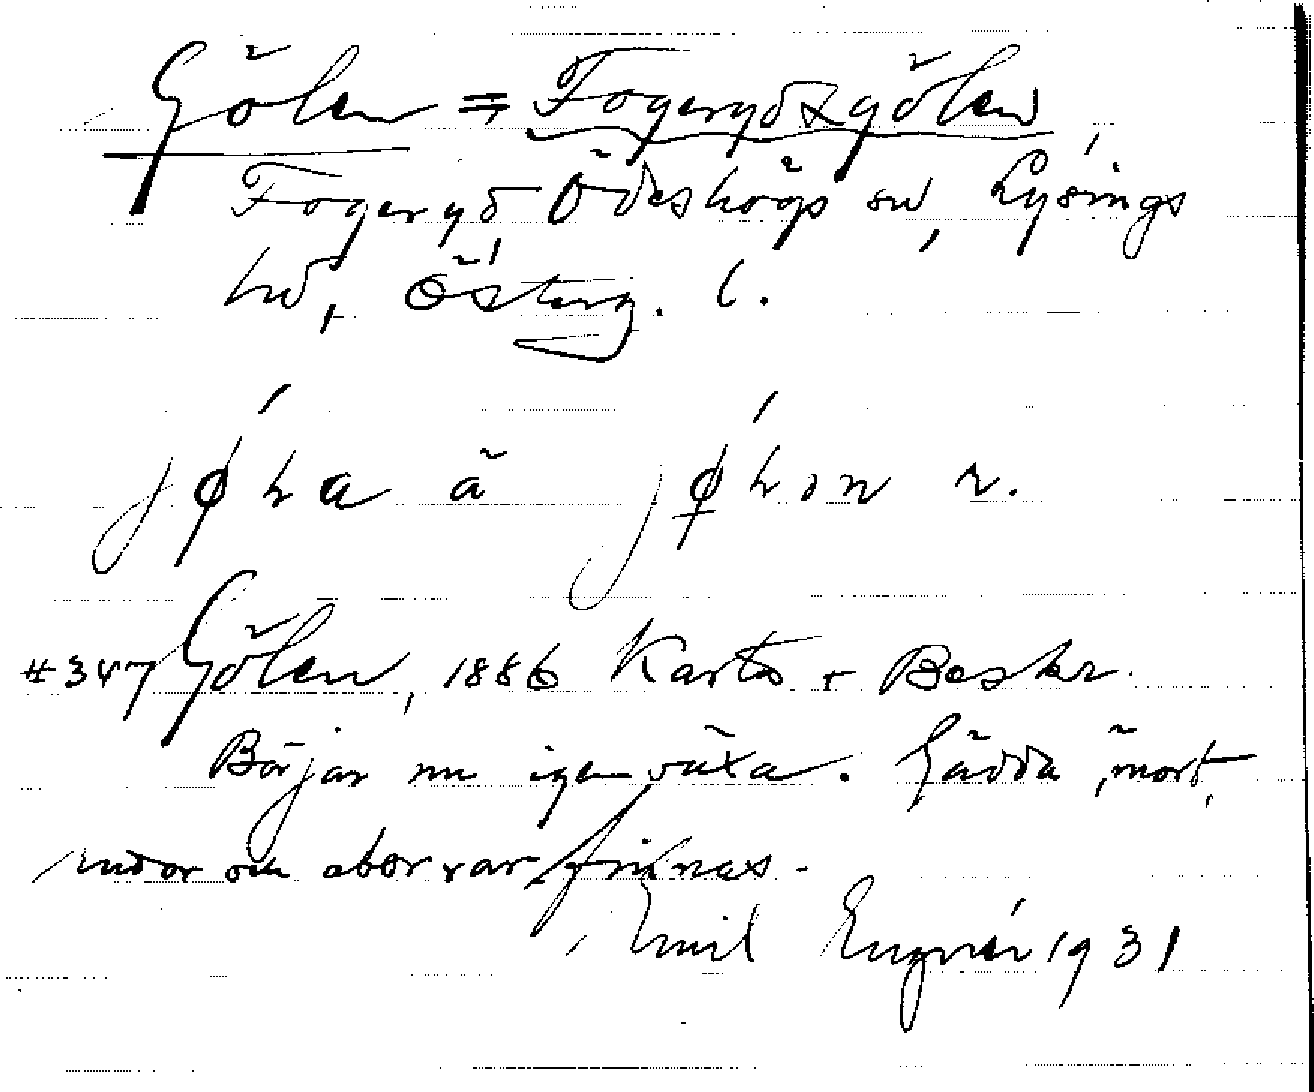 Gölen = Fogerydsgölen,
Fogeryd, Ödeshögs sn, Lysings
hd, Österg. l.
jøha ä jøhon r.
#347 Gölen, 1886 Karta + Beskr.
Börjar nu igenväxa. Gädda, mört,
rudor och abborrar finnas.
Emil Engnér 1931